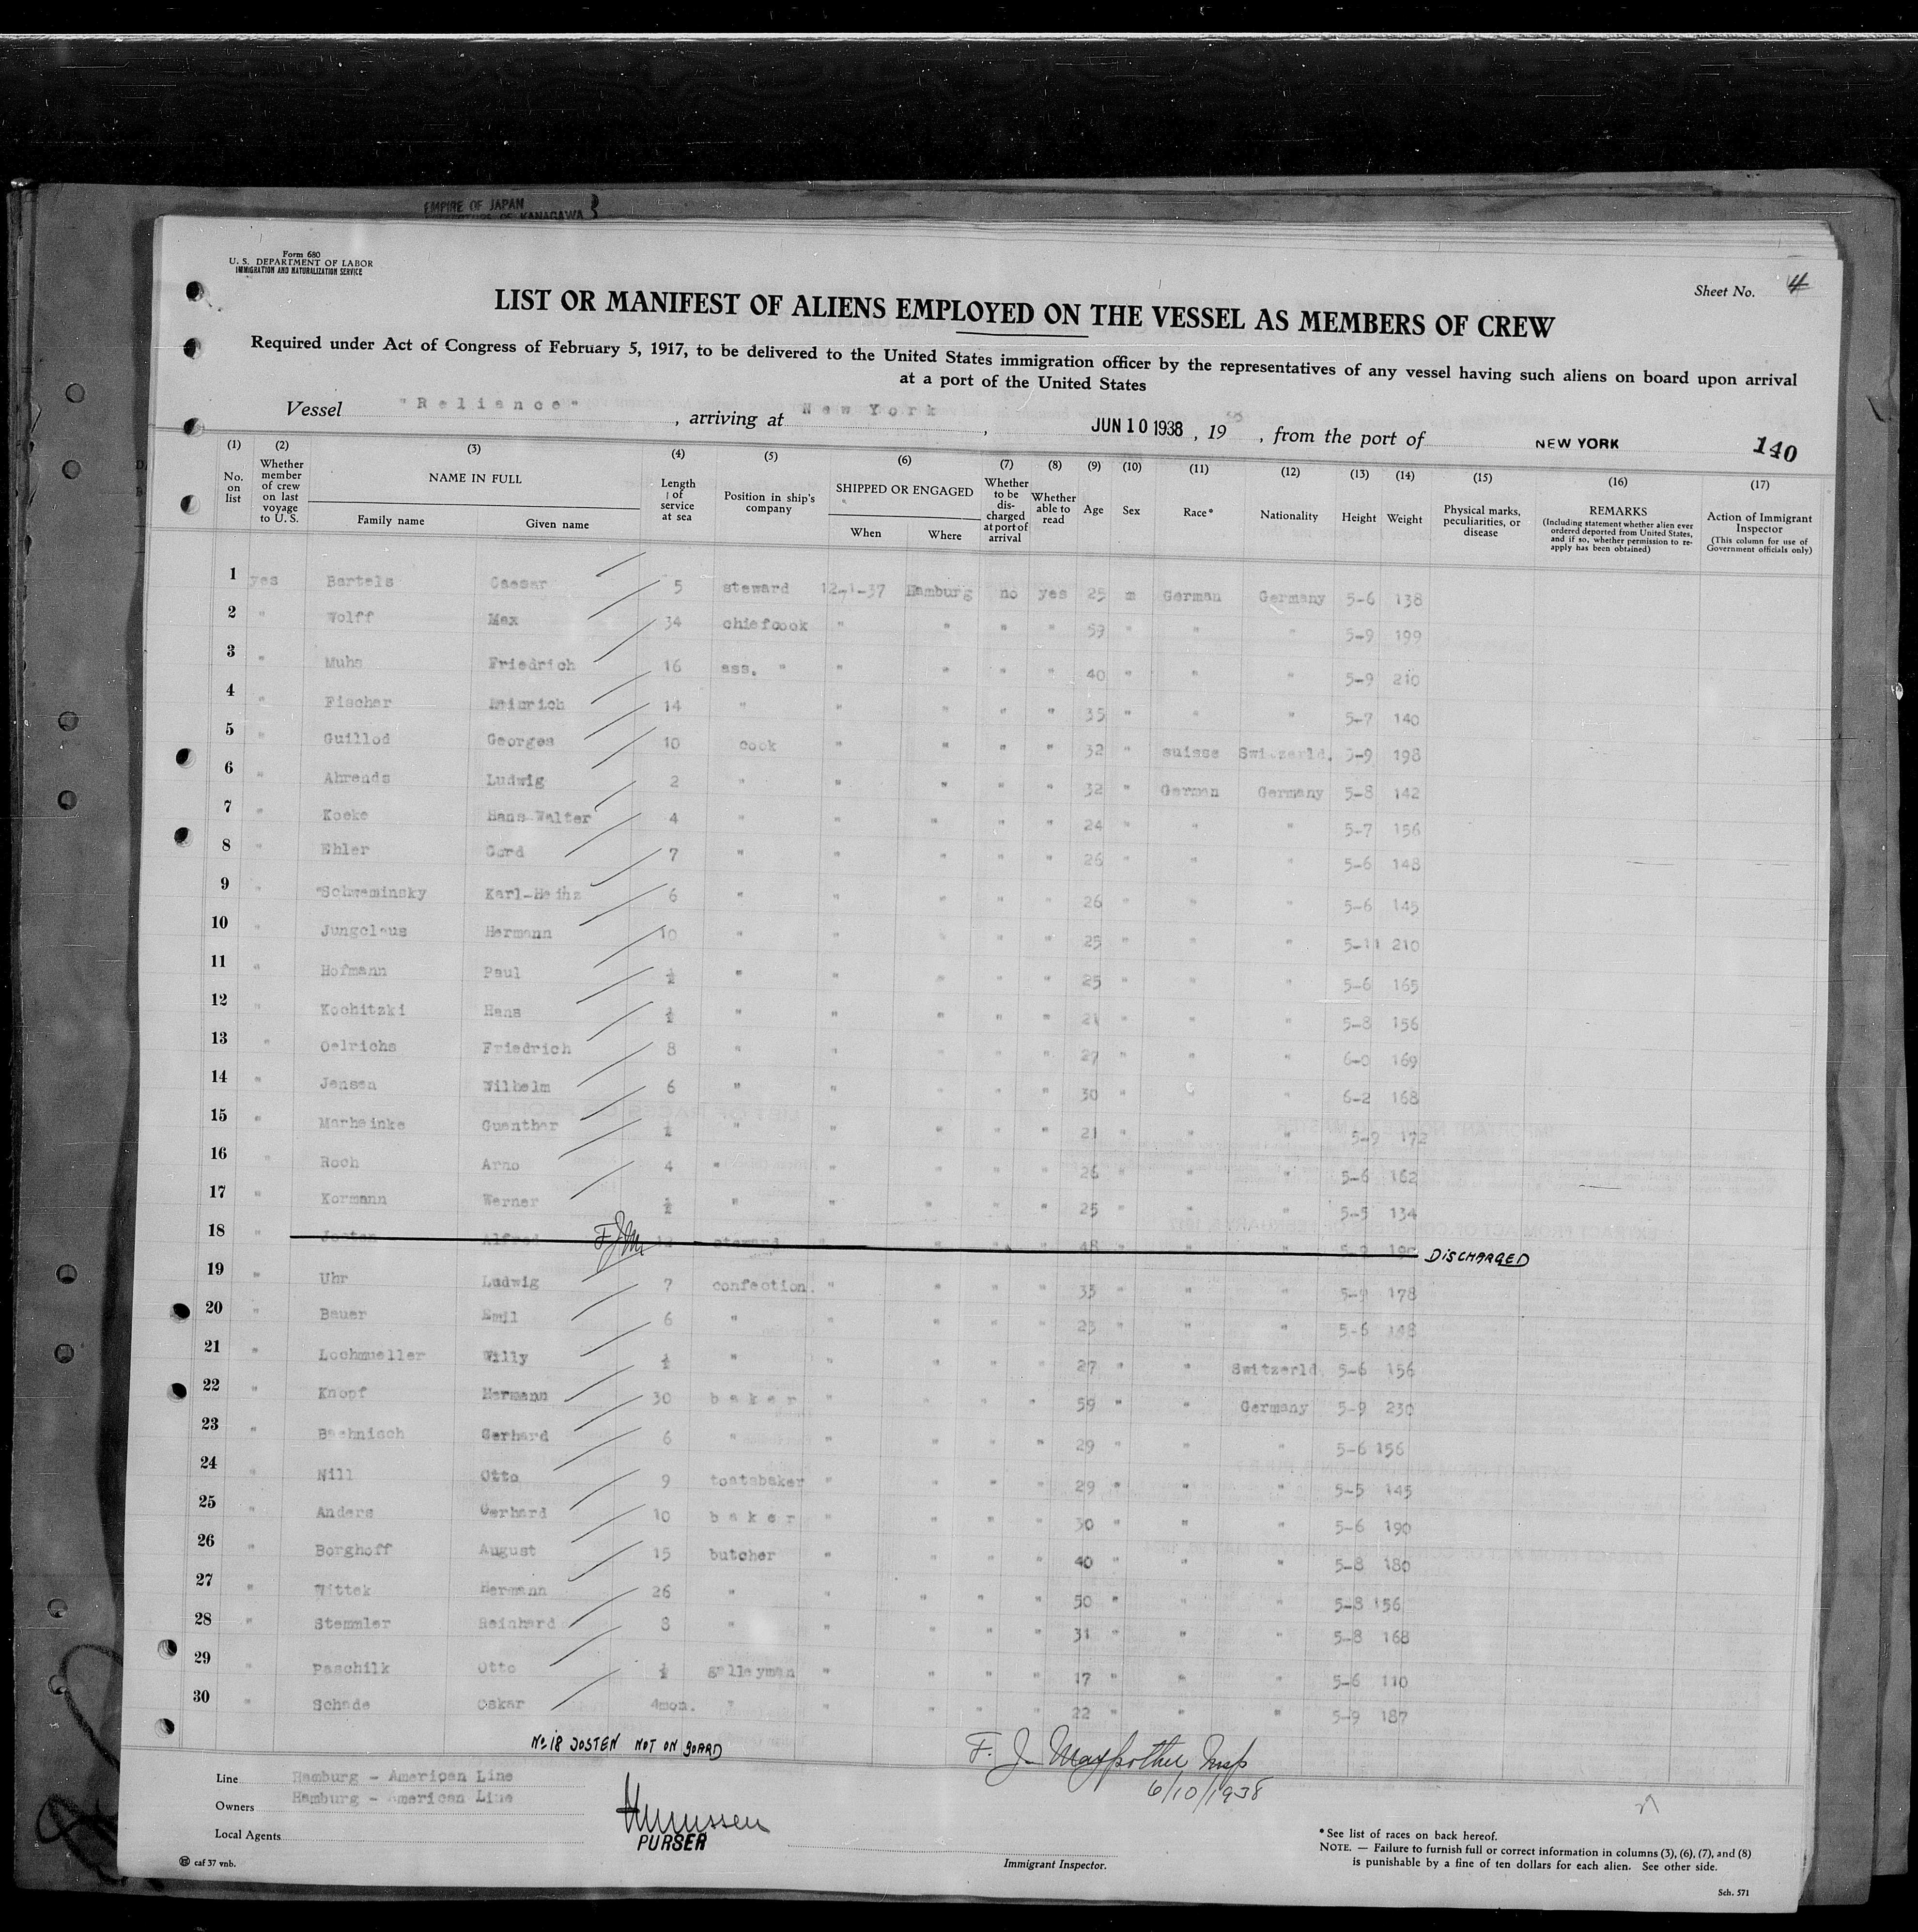 EMPIRE OF JAPAN
KANAGAWA
Form 680
U. S. DEPARTMENT OF LABOR
IMMIGRATION AND NATURALIZATION SERVICE
Sheet No. 4
LIST OR MANIFEST OF ALIENS EMPLOYED ON THE VESSEL AS MEMBERS OF CREW
Required under Act of Congress of February 5, 1917, to be delivered to the United States immigration officer by the representatives of any vessel having such aliens on board upon arrival
at a port of the United States
Vessel "Reliance", arriving at New York, JUN 10 1938, 19 , from the port of NEW YORK 140
(1) (2) (3) (4) (5) (6) (7) (8) (9) (10) (11) (12) (13) (14) (15) (16) (17)
No. on list
Whether member of crew on last voyage to U. S.
NAME IN FULL
Family name Given name
Length of service at sea
Position in ship's company
SHIPPED OR ENGAGED
When Where
Whether to be discharged at port of arrival
Whether able to read
Age
Sex
Race*
Nationality
Height
Weight
Physical marks, peculiarities, or disease
REMARKS
(Including statement whether alien ever ordered deported from United States, and if so, whether permission to reapply has been obtained)
Action of Immigrant Inspector
(This column for use of Government officials only)
1 yes Bartels Caesar 5 steward 12-1-37 Hamburg no yes 25 m German Germany 5-6 138
2 " Wolff Max 34 chiefcook " " " " 59 " " " 5-9 199
3 " Muhs Friedrich 16 ass. " " " " " 40 " " " 5-9 210
4 " Fischer Heinrich 14 " " " " " 35 " " " 5-7 140
5 " Guillod Georges 10 cook " " " " 32 " suisse Switzerld. 5-9 198
6 " Ahrends Ludwig 2 " " " " " 32 " German Germany 5-8 142
7 " Koeke Hans-Walter 4 " " " " " 24 " " " 5-7 156
8 " Ehler Cord 7 " " " " " 26 " " " 5-6 148
9 " Schweminsky Karl-Heinz 6 " " " " " 26 " " " 5-6 145
10 " Jungclaus Hermann 10 " " " " " 25 " " " 5-11 210
11 " Hofmann Paul ½ " " " " " 25 " " " 5-6 165
12 " Kochitzki Hans ½ " " " " " 21 " " " 5-8 156
13 " Oelrichs Friedrich 8 " " " " " 27 " " " 6-0 169
14 " Jensen Wilhelm 6 " " " " " 30 " " " 6-2 168
15 " Marheinke Guenther ½ " " " " " 21 " " " 5-9 172
16 " Roch Arno 4 " " " " " 26 " " " 5-6 162
17 " Kormann Werner ½ " " " " " 25 " " " 5-5 134
18 " Josten Alfred FJM steward " " " " 48 " " " 5-9 DISCHARGED
19 " Uhr Ludwig 7 confection. " " " " 35 " " " 5-9 178
20 " Bauer Emil 6 " " " " " 23 " " " 5-6 148
21 " Lochmueller Willy ½ " " " " " 27 " " Switzerld. 5-6 156
22 " Knopf Hermann 30 baker " " " " 59 " " Germany 5-9 230
23 " Baehnisch Gerhard 6 " " " " " 29 " " " 5-6 156
24 " Nill Otto 9 toatsbaker " " " " 29 " " " 5-5 145
25 " Anders Gerhard 10 baker " " " " 30 " " " 5-6 190
26 " Borghoff August 15 butcher " " " " 40 " " " 5-8 180
27 " Wittek Hermann 26 " " " " " 50 " " " 5-8 156
28 " Stemmler Reinhard 8 " " " " " 31 " " " 5-8 168
29 " Paschilk Otto ½ galleyman " " " " 17 " " " 5-6 110
30 " Schade Oskar 4mon. " " " " " 22 " " " 5-9 187
No 18 JOSTEN NOT ON BOARD
F. J. Maypother Insp
6/10/1938
Line Hamburg - American Line
Owners Hamburg - American Line
Local Agents
PURSER
Immigrant Inspector.
*See list of races on back hereof.
NOTE. — Failure to furnish full or correct information in columns (3), (6), (7), and (8)
is punishable by a fine of ten dollars for each alien. See other side.
caf 37 vnb.
Sch. 571